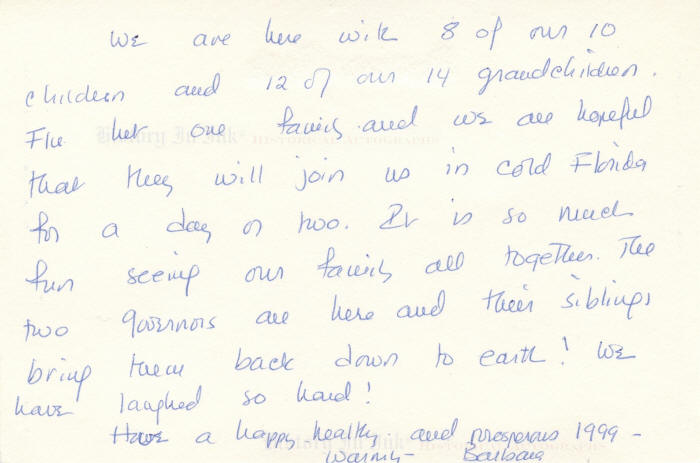 We are here with 8 of our 10
children and 12 of our 14 grandchildren.
Flu hit one family and we are hopeful
that they will join us in cold Florida
for a day or two. It is so much
fun seeing our family all together. The
two governors are here and their siblings
bring them back down to earth! We
have laughed so hard!
Have a happy healthy and prosperous 1999 –
Warmly – Barbara
History In Ink HISTORICAL AUTOGRAPHS
History In Ink HISTORICAL AUTOGRAPHS